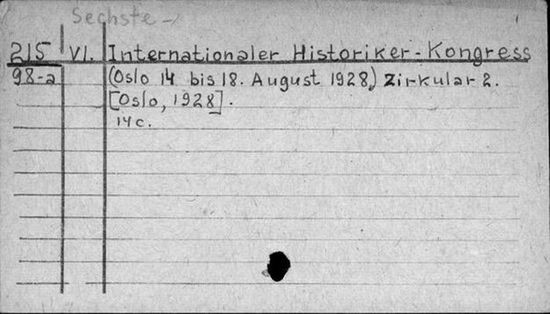 Sechste
215 VI. Internationaler Historiker-Kongress
98-a (Oslo 14 bis 18. August 1928) Zirkular 2.
[Oslo, 1928].
14 c.